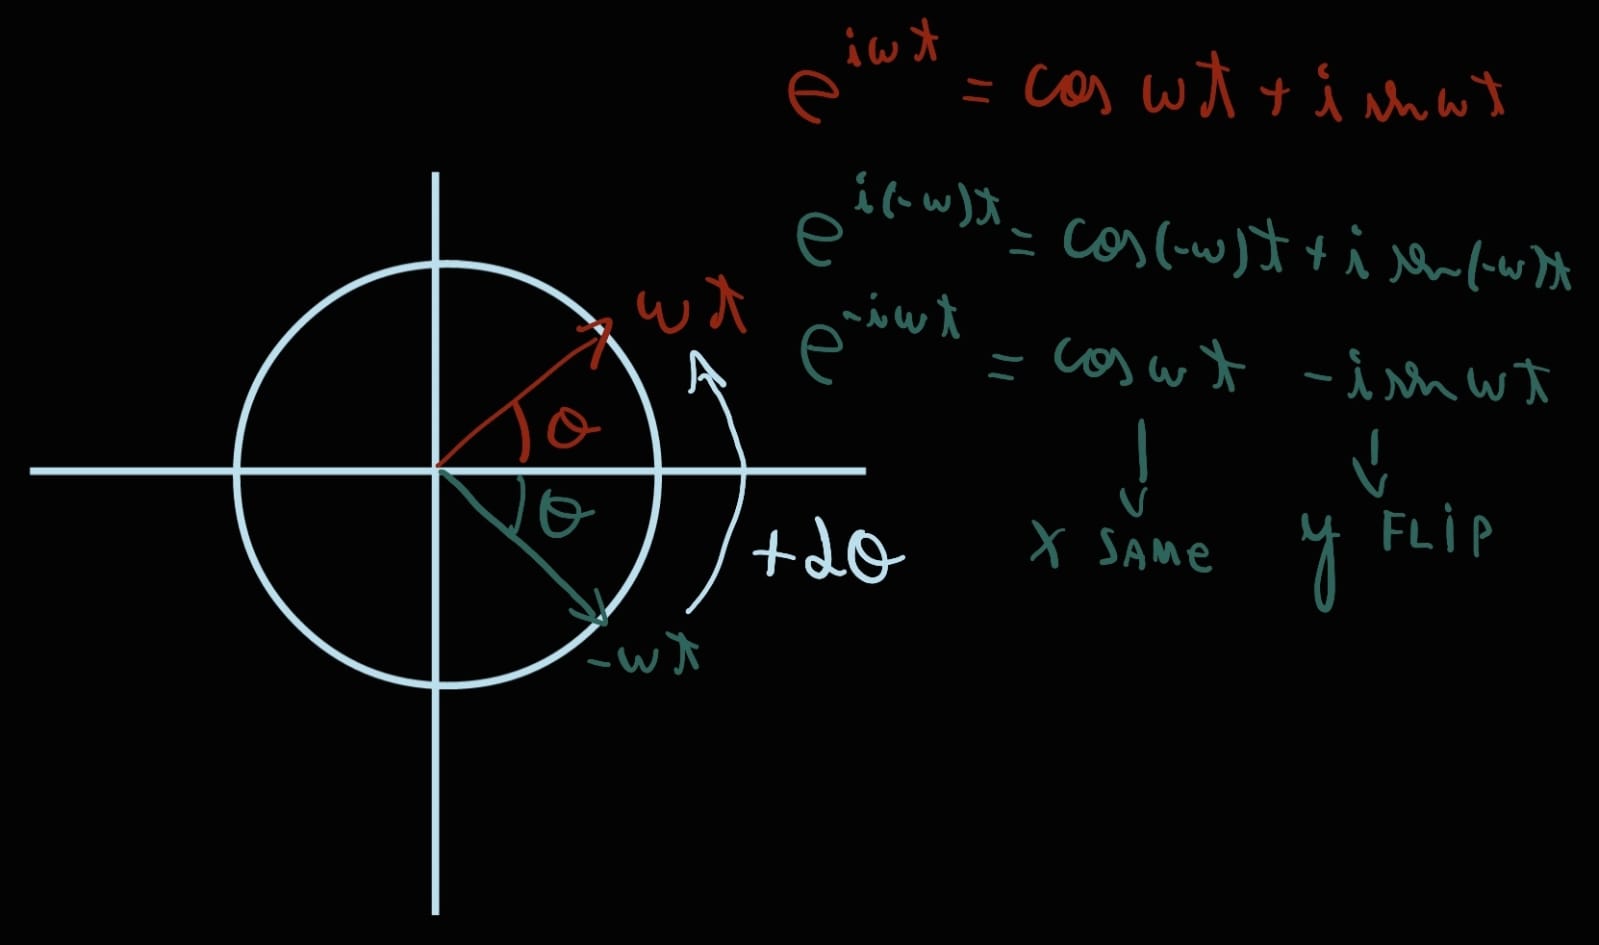 e^{iωt} = cos ωt + i sin ωt
e^{i(-ω)t} = cos(-ω)t + i sin(-ω)t
e^{-iωt} = cos ωt - i sin ωt
x SAME y FLIP
ωt
θ
θ
+2θ
-ωt